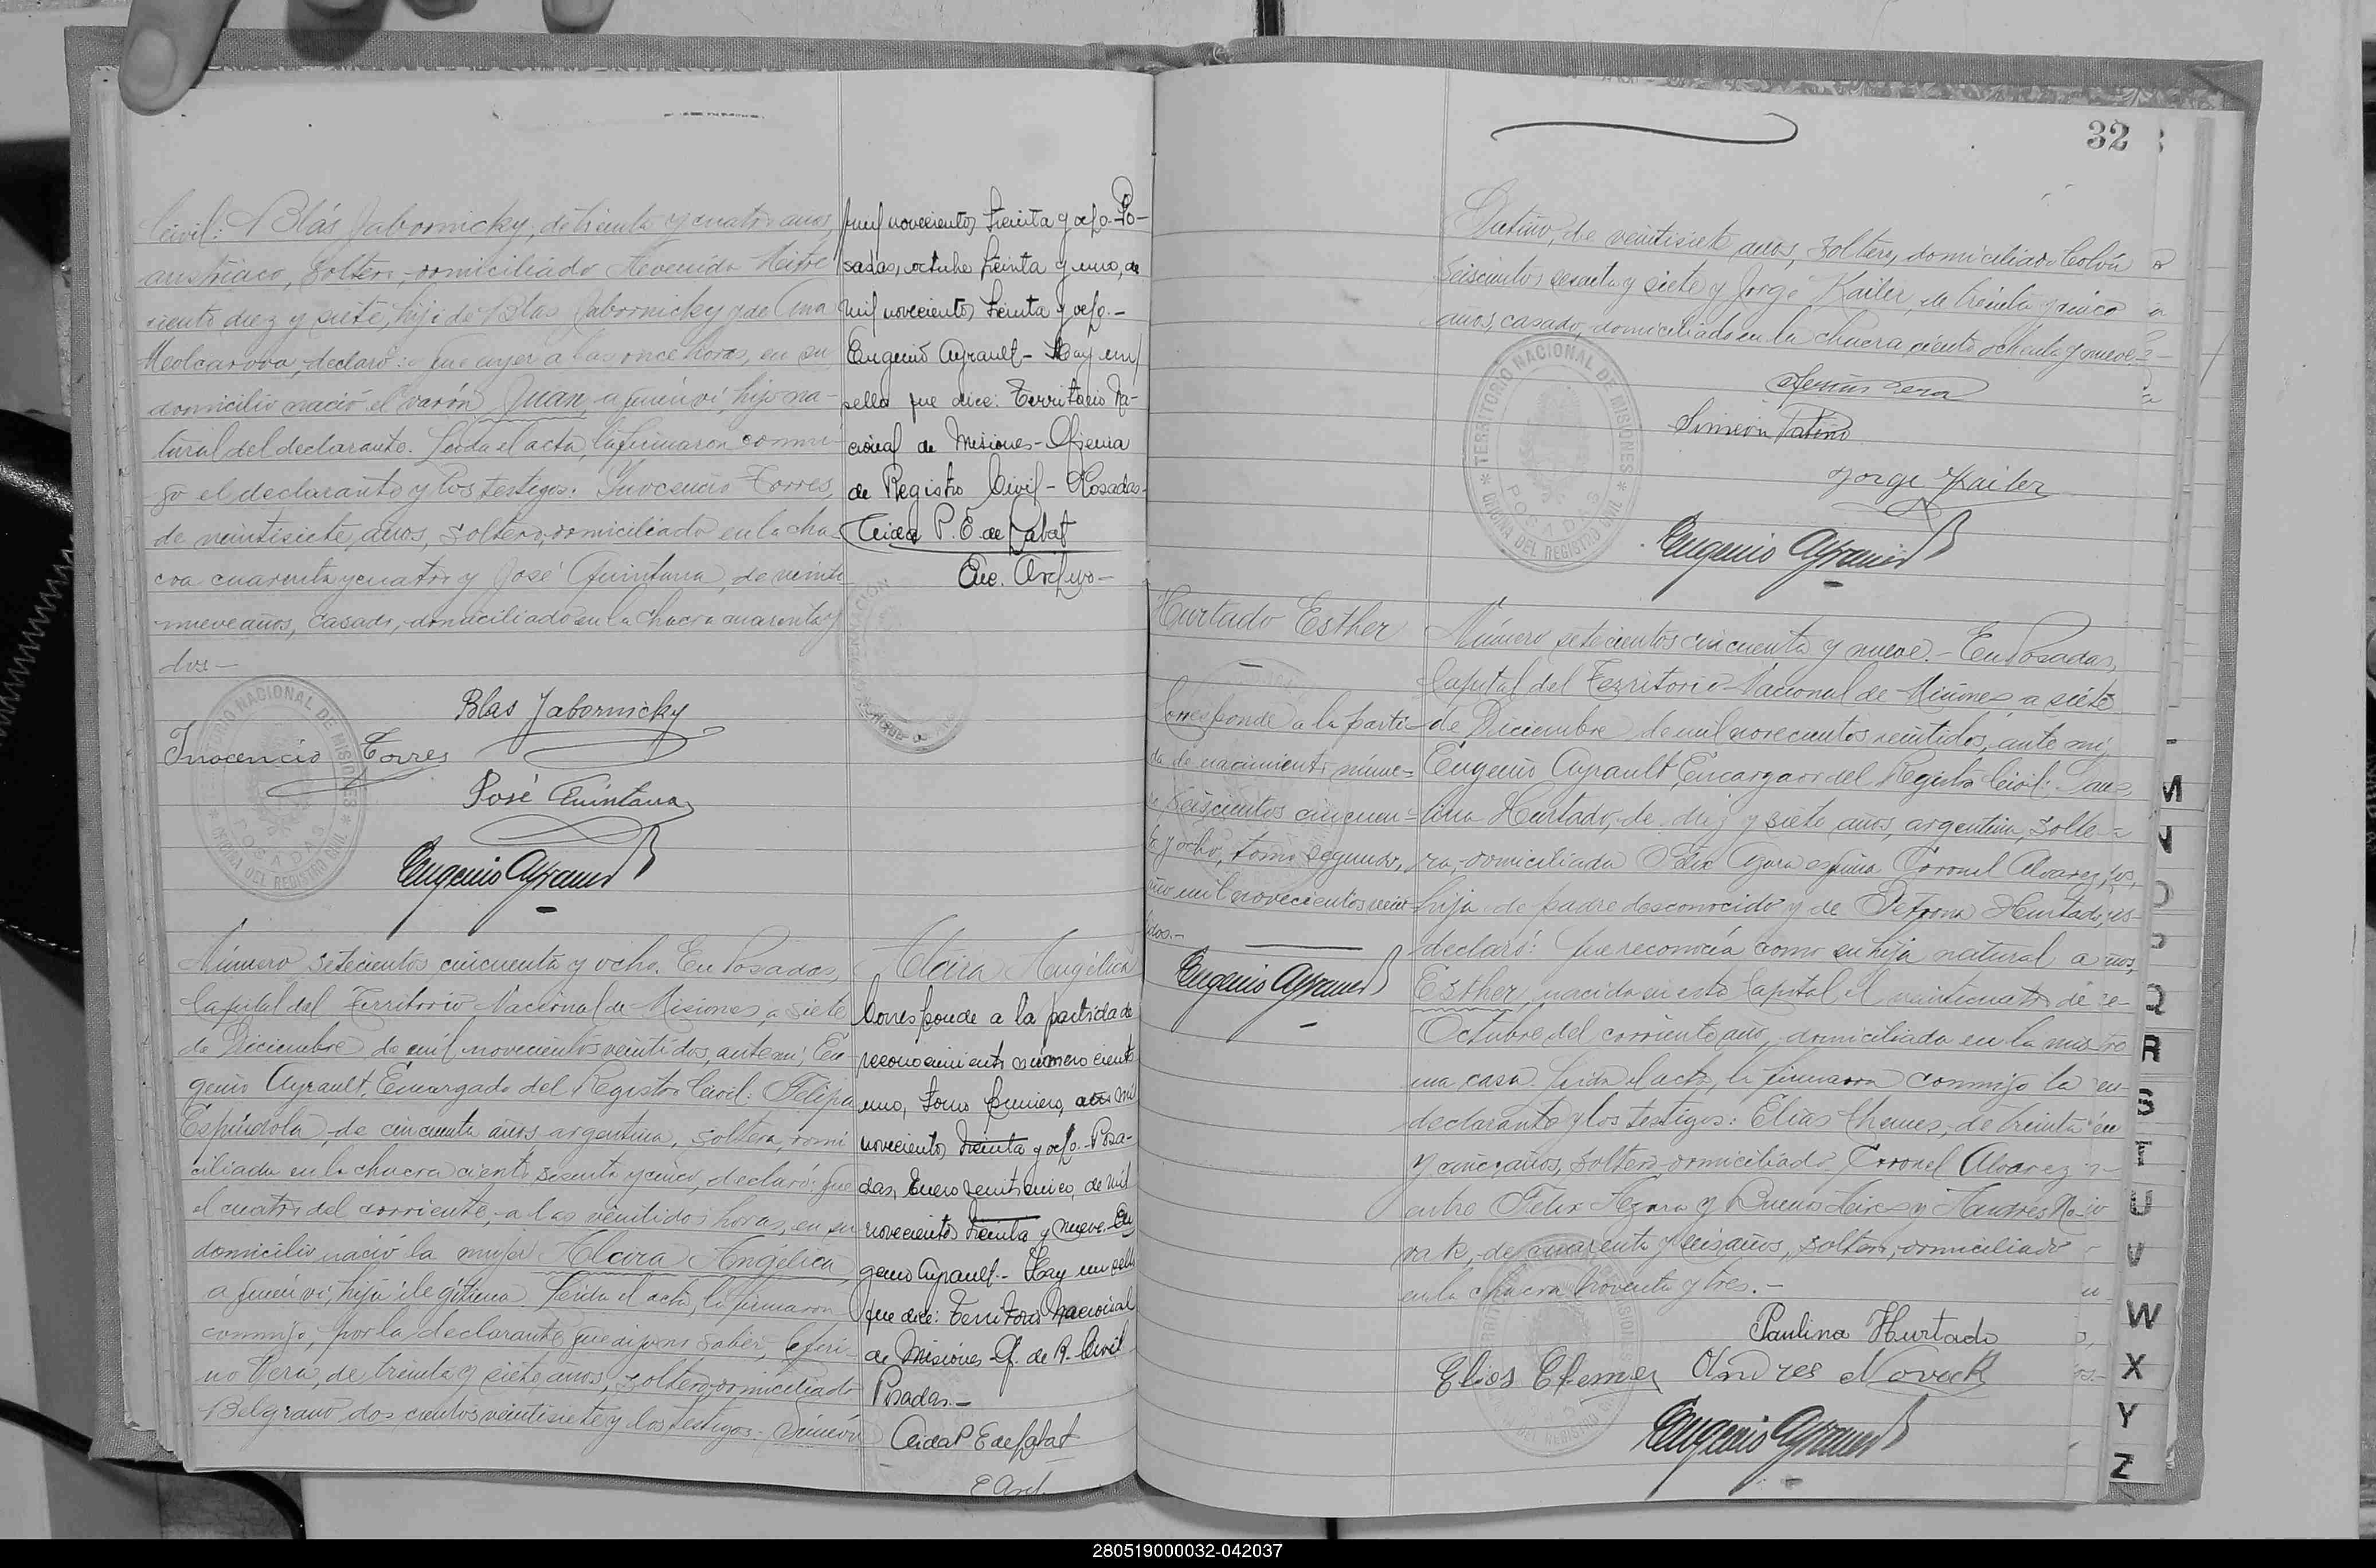 Civil: Blás Jabornicky, de treinta y cuatro años,
austriaco, soltero, domiciliado Avenida Mitre
ciento diez y siete, hijo de Blas Jabornicky y de Ana
declaró: Que ayer a las once horas, en su
domicilio nació el varón Juan, a quien vi, hijo na-
tural del declarante. Leida el acta, la firmaron conmi-
go el declarante y los testigos: Inocencio Torres,
de veintisiete años, soltero, domiciliado en la cha-
cra cuarenta y cuatro y José Quintana, de veinti-
nueve años, casado, domiciliado en la chacra cuarenta y
dos—
Blas Jabornicky
Inocencio Torres
José Quintana
Eugenio Ayrault
TERRITORIO NACIONAL DE MISIONES
POSADAS
OFICINA DEL REGISTRO CIVIL
mil novecientos treinta y ocho. Po-
sadas, octubre treinta y uno, de
mil novecientos treinta y ocho.—
Eugenio Ayrault— Hay un
sello que dice: Territorio Na-
cional de Misiones— Oficina
de Registro Civil— Posadas—
P. E. de
Enc. Archivo—
Número setecientos cincuenta y ocho. En Posadas,
Capital del Territorio Nacional de Misiones, a siete
de Diciembre de mil novecientos veintidos, ante mi, Eu-
genio Ayrault, Encargado del Registro Civil: Felipa
Espíndola, de cincuenta años, argentina, soltera, domi-
ciliada en la chacra ciento sesenta y cinco, declaró: Que
el cuatro del corriente, a las veintidos horas, en su
domicilio nació la mujer Alcira Angélica,
a quien vi, hija ilegítima. Leida el acta, la firmaron
conmigo, por la declarante que dijo no saber, Ceferi-
no Vera, de treinta y siete años, soltero, domiciliado
Belgrano dos cientos veintisiete y los testigos: Simeón
Alcira Angélica
Corresponde a la partida de
reconocimiento número ciento
uno, tomo primero, año mil
novecientos treinta y ocho. Posa-
das, Enero veinticinco, de mil
novecientos treinta y nueve. Eu
genio Ayrault.— Hay un sello
que dice: Territorio Nacional
de Misiones— Of. de R. Civil
Posadas.—
P E de
E Arch.
32
Patiño, de veintisiete años, soltero, domiciliado Colón
seiscientos sesenta y siete y Jorge Kailer, de treinta y cinco
años, casado, domiciliado en la chacra ciento ochenta y nueve.—
Vera
Simeón Patiño
Jorge Kailer
Eugenio Ayrault
TERRITORIO NACIONAL DE MISIONES
POSADAS
OFICINA DEL REGISTRO CIVIL
Hurtado Esther
Corresponde a la parti-
da de nacimiento núme-
ro seiscientos cincuen-
ta y ocho, tomo segundo,
año mil novecientos vein-
tidos.—
Eugenio Ayrault
Número setecientos cincuenta y nueve.— En Posadas,
Capital del Territorio Nacional de Misiones, a siete
de Diciembre de mil novecientos veintidos, ante mi,
Eugenio Ayrault, Encargado del Registro Civil: Pau-
lina Hurtado, de diez y siete años, argentina, solte-
ra, domiciliada Félix Azara esquina Coronel Alvarez,
hija de padre desconocido y de Petrona Hurtado,
declaró: Que reconocía como su hija natural a
Esther, nacida en esta Capital el veinticuatro de
Octubre del corriente año, domiciliada en la mis-
ma casa. Leida el acta, la firmaron conmigo la
declarante y los testigos: Elias Chemes, de treinta
y cinco años, soltero, domiciliado Coronel Alvarez
entre Félix Azara y Buenos Aires y Andrés No-
vak, de cuarenta y seis años, soltero, domiciliado
en la chacra noventa y tres.—
Paulina Hurtado
Elias Chemes Andres Novack
Eugenio Ayrault
M
N
O
P
Q
R
S
T
U
V
W
X
Y
Z
280519000032-042037